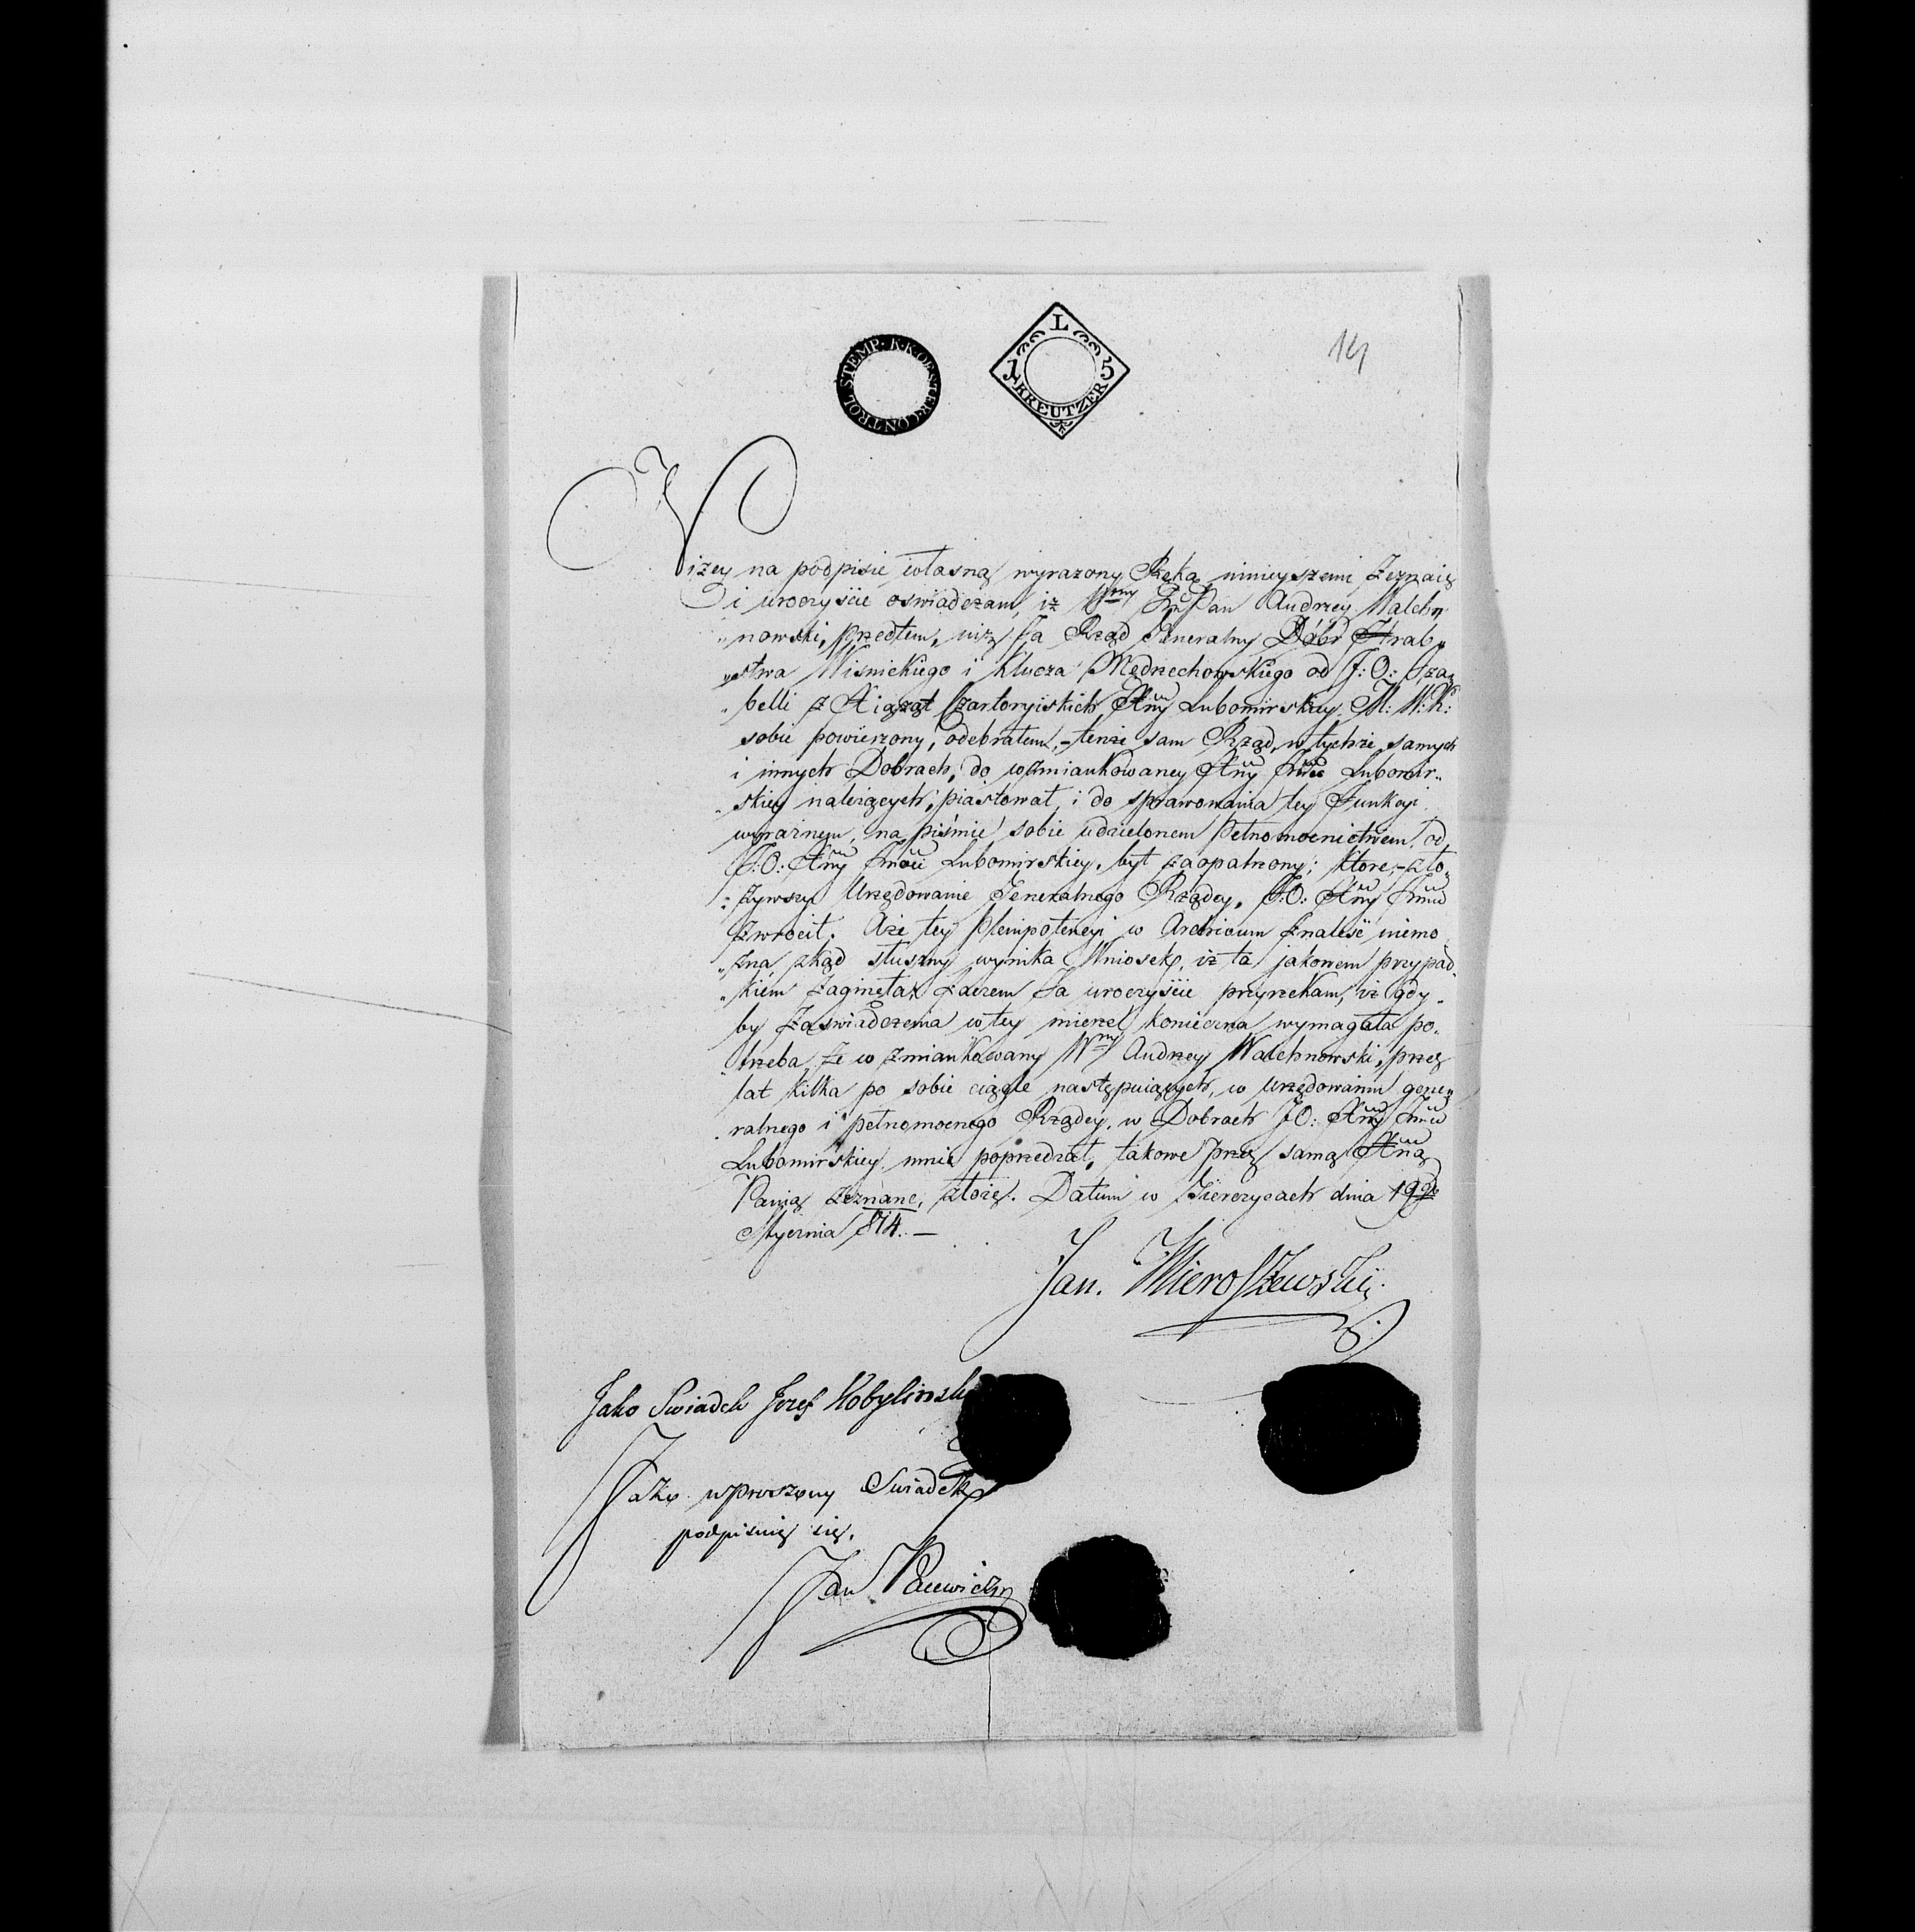 STEMP: K.K. OESTER CONTROL
L
15
KREUTZER
14
Niżey na podpisie własną wyrazony Ręką, ninieyszemi Zeznaię
i uroczyście oswiadczam, iż Pan Andrzey Walch„
„nowski, przedtem, niż Ja Rząd Jeneralny Dóbr Hrab„
„stwa Wisnickiego i Klucza Mędrzechowskiego od J: O: Iza„
„belli z Xiążąt Czartoryiskich Xny Lubomirskiey,
sobie powierzony, odebrałem, - tenże sam Rząd, w tychże samych
i innych Dobrach, do wzmiankowaney Xny Lubomir„
„skiey należących, piastował, i do sprawowania tey Funkcyi
wyraźnem, na piśmie sobie udzielonem Pełnomocnictwem, od
J: O: Xny Lubomirskiey, był zaopatrzony; Ktore, - zło„
„żywszy Urzędowanie Jeneralnego Rządcy, J: O: Xny
zwrocił. Aże tey Plenipotencyi w Archivum znaleść niemo„
„żna, zkąd słuszny wynika Wniosek, iż ta jakowem przypad„
„kiem zaginęła, zaczem Ja uroczyście przyrzekam, iż gdy„
by zaswiadczenia w tey mierze konieczna wymagała po„
„trzeba, że wzmiankowany Wny Andrzey Walchnowski, przez
lat kilka po sobie ciągle następuiących, w urzędowaniu gene„
„ralnego i pełnomocnego Rządcy, w Dobrach JO: Xny
Lubomirskiey, mnie poprzedzał, takowe przez samą Xną
Panią zeznane, złożę. Datum w dnia 19go
Stycznia 814. —
Jan. Mieroszewski
Jako Swiadek Jozef Kobylinski
Jako uproszony Swiadek
podpisuię się.
Jan